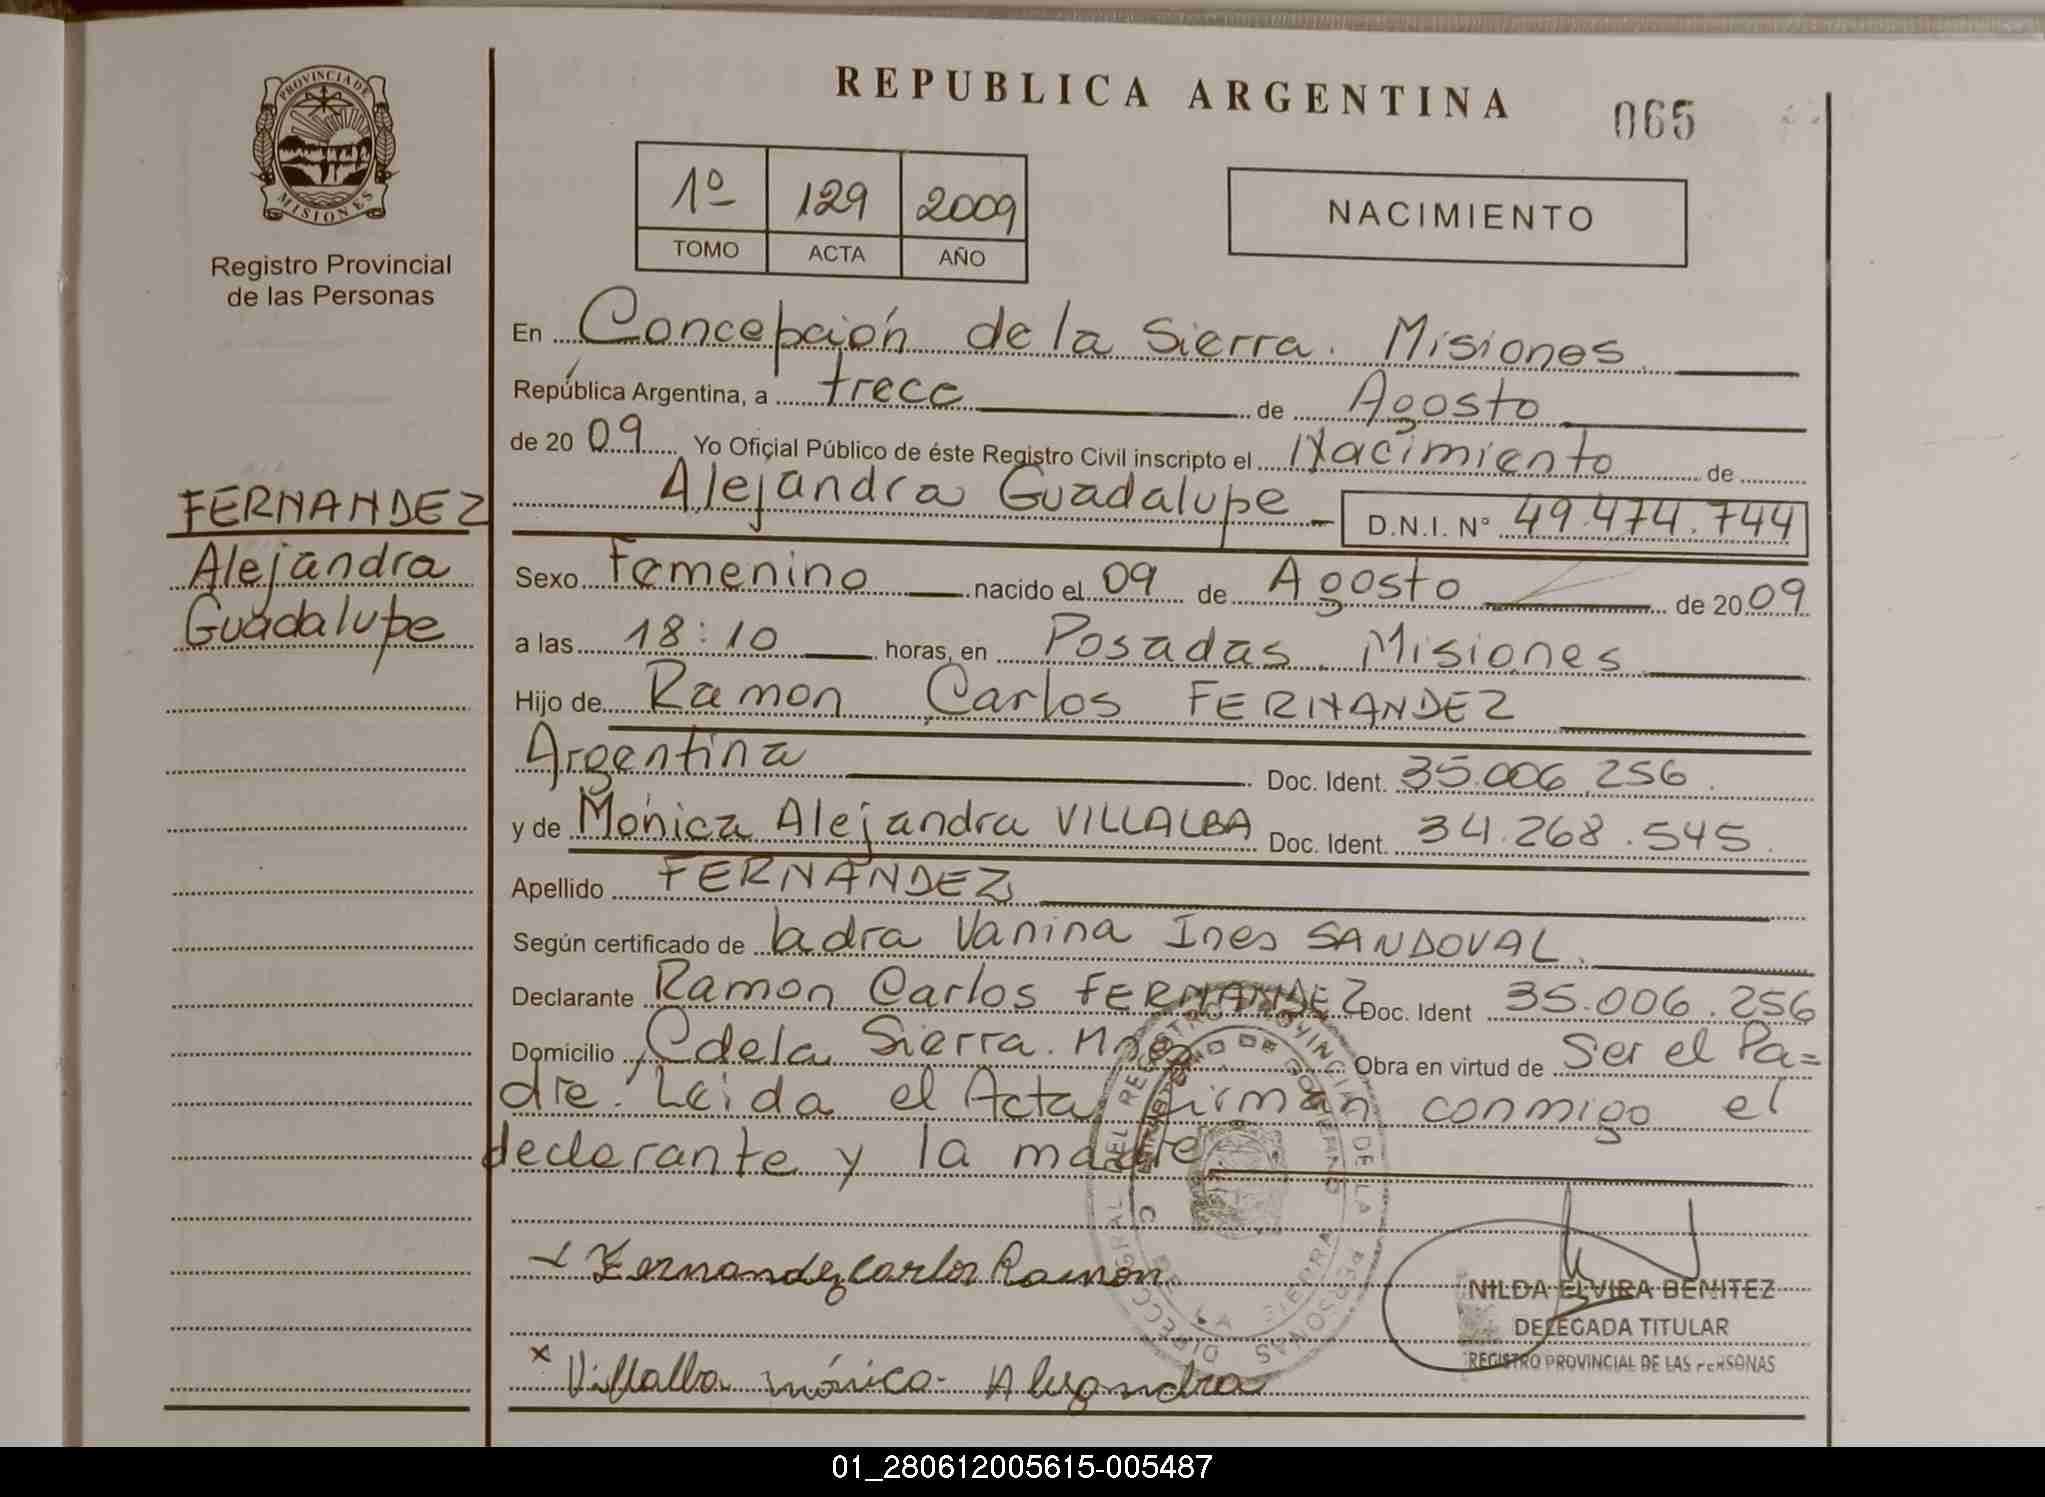 PROVINCIA DE
MISIONES
Registro Provincial
de las Personas
FERNANDEZ
Alejandra
Guadalupe
REPUBLICA ARGENTINA
065
1º 129 2009
TOMO ACTA AÑO
NACIMIENTO
En Concepción de la Sierra. Misiones
República Argentina, a trece de Agosto
de 2009 Yo Oficial Público de éste Registro Civil inscripto el Nacimiento de
Alejandra Guadalupe D.N.I. Nº 49.474.744
Sexo Femenino nacido el 09 de Agosto de 2009
a las 18:10 horas, en Posadas. Misiones
Hijo de Ramon Carlos FERNANDEZ
Argentina Doc. Ident. 35.006.256.
y de Mónica Alejandra VILLALBA Doc. Ident. 34.268.545.
Apellido FERNANDEZ
Según certificado de Vanina Ines SANDOVAL.
Declarante Ramon Carlos FERNANDEZ Doc. Ident 35.006.256
Domicilio C de la Sierra. Mnes Obra en virtud de Ser el Pa=
dre. Leida el Acta firman conmigo el
declarante y la madre
Fernandez carlos Ramon
x Villalba mónica Alejandra
NILDA ELVIRA BENITEZ
DELEGADA TITULAR
REGISTRO PROVINCIAL DE LAS PERSONAS
01_280612005615-005487